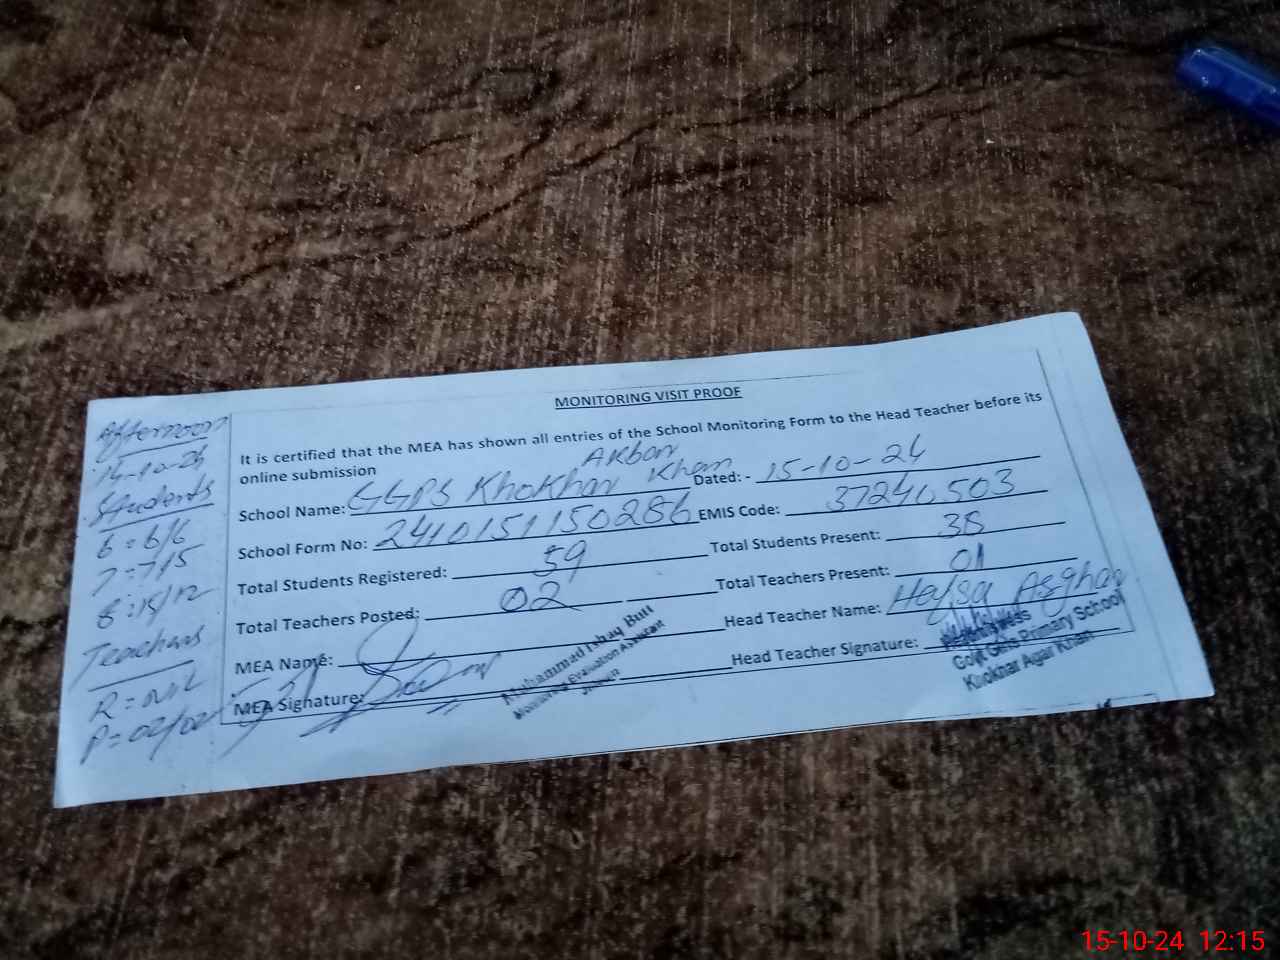 MONITORING VISIT PROOF
It is certified that the MEA has shown all entries of the School Monitoring Form to the Head Teacher before its
online submission
School Name: GGPS Khokhar Akbar Khan Dated: - 15-10-24
School Form No: 2410151150286 EMIS Code: 37240503
Total Students Registered: 59 Total Students Present: 38
Total Teachers Posted: 02 Total Teachers Present: 01
MEA Name: Head Teacher Name: Asghar
MEA Signature: Head Teacher Signature:
Muhammad Ishaq Butt
Monitoring Evaluation Assistant
Jhelum
Govt Girls Primary School
Khokhar Khan
Afternoon
14-10-24
Students
6 = 6/6
7 = 7/5
8 = 15/12
Teachers
R = Nil
P = 02/02
15-10-24 12:15